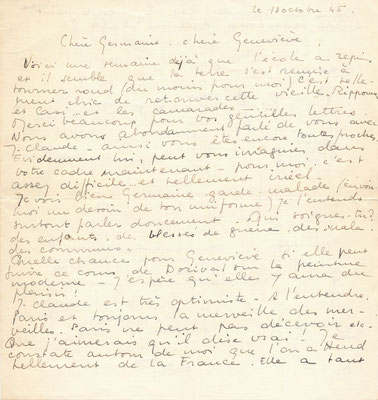 le 13 octobre 45.
Chère Germaine, chère Geneviève,
Voici une semaine déjà que l'école a repris
et il semble que la terre s'est remise à
tourner rond (du moins pour moi). C'est telle-
ment chic de retrouver cette vieille
et Cari... et les camarades.
Merci beaucoup pour vos gentilles lettres.
Nous avons abondamment parlé de vous avec
J. Claude - ainsi vous êtes encore toutes proches.
Evidemment lui, peut vous imaginer dans
votre cadre maintenant - pour moi, c'est
assez difficile... et tellement irréel.
Je vois bien Germaine garde-malade (envoie
moi un dessin de ton uniforme) je t'entends
surtout parler doucement. - Qui soignes-tu?
des enfants, des blessés de guerre, des mala-
des communs
Quelle chance pour Geneviève si elle peut
suivre ce cours de Dorival sur la peinture
moderne - J'espère qu'elle y aura du
plaisir!
J. Claude est très optimiste - A l'entendre,
Paris est toujours la merveille des mer-
veilles. Paris ne peut pas décevoir etc.
Que j'aimerais qu'il dise vrai! Je
constate autour de moi que l'on attend
tellement de la France. Elle a tant